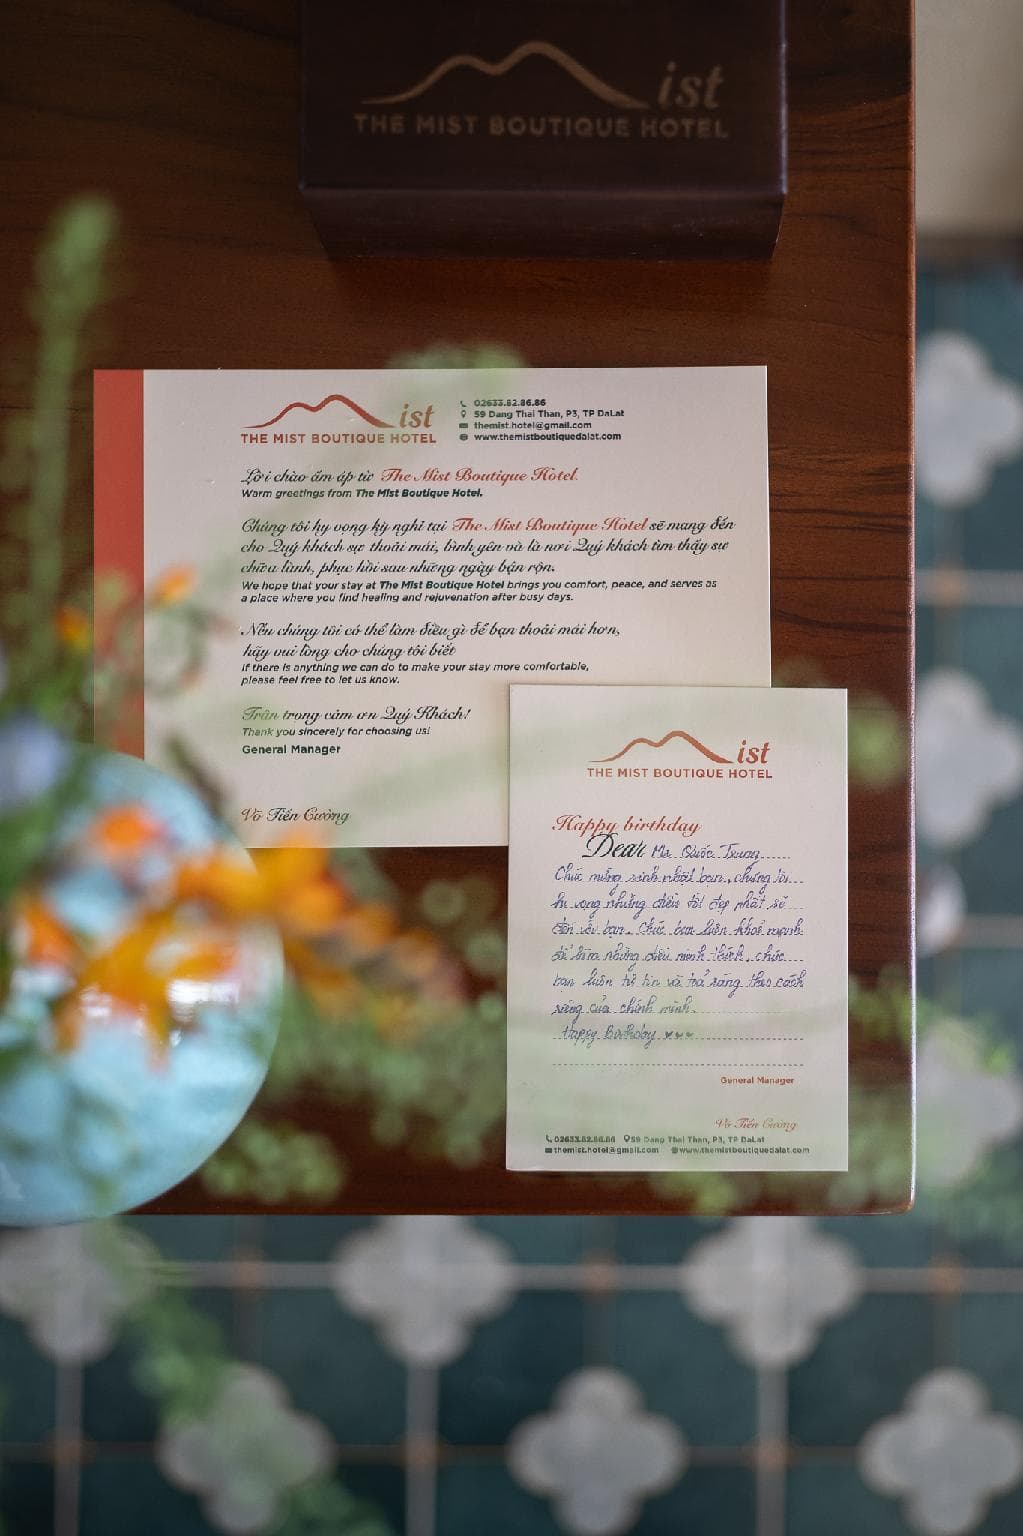 ist
THE MIST BOUTIQUE HOTEL
ist
THE MIST BOUTIQUE HOTEL
02633.82.86.86
59 Dang Thai Than, P3, TP DaLat
themist.hotel@gmail.com
www.themistboutiquedalat.com
Lời chào ấm áp từ The Mist Boutique Hotel.
Warm greetings from The Mist Boutique Hotel.
Chúng tôi hy vọng kỳ nghỉ tại The Mist Boutique Hotel sẽ mang đến
cho Quý khách sự thoải mái, bình yên và là nơi Quý khách tìm thấy sự
chữa lành, phục hồi sau những ngày bận rộn.
We hope that your stay at The Mist Boutique Hotel brings you comfort, peace, and serves as
a place where you find healing and rejuvenation after busy days.
Nếu chúng tôi có thể làm điều gì để bạn thoải mái hơn,
hãy vui lòng cho chúng tôi biết
If there is anything we can do to make your stay more comfortable,
please feel free to let us know.
Trân trọng cảm ơn Quý Khách!
Thank you sincerely for choosing us!
General Manager
Võ Tiến Cường
ist
THE MIST BOUTIQUE HOTEL
Happy birthday
Dear Mr Quốc Trung
Chúc mừng sinh nhật bạn, chúng tôi
hi vọng những điều tốt đẹp nhất sẽ
đến với bạn. Chúc bạn luôn khoẻ mạnh
để làm những điều mình thích, chúc
bạn luôn tự tin và toả sáng theo cách
riêng của chính mình.
Happy Birthday ♥♥♥
General Manager
Võ Tiến Cường
02633.82.86.86 59 Dang Thai Than, P3, TP DaLat
themist.hotel@gmail.com www.themistboutiquedalat.com